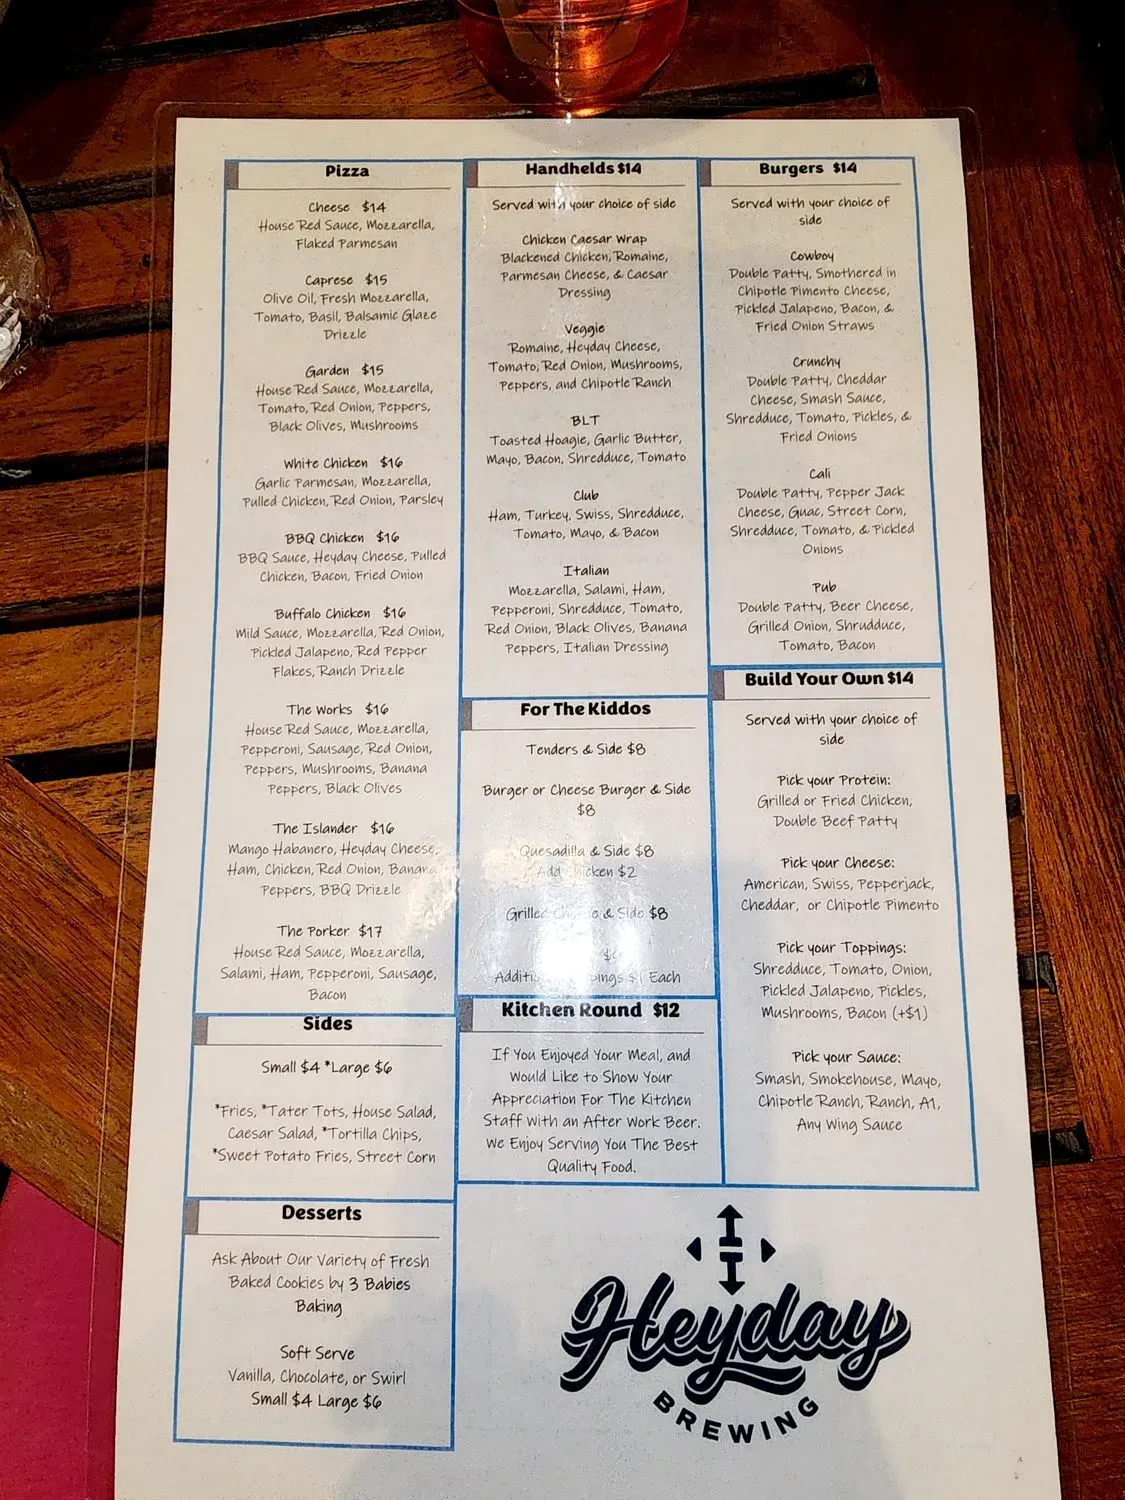 Pizza
Cheese $14
House Red Sauce, Mozzarella,
Flaked Parmesan
Caprese $15
Olive Oil, Fresh Mozzarella,
Tomato, Basil, Balsamic Glaze
Drizzle
Garden $15
House Red Sauce, Mozzarella,
Tomato, Red Onion, Peppers,
Black Olives, Mushrooms
White Chicken $16
Garlic Parmesan, Mozzarella,
Pulled Chicken, Red Onion, Parsley
BBQ Chicken $16
BBQ Sauce, Heyday Cheese, Pulled
Chicken, Bacon, Fried Onion
Buffalo Chicken $16
Mild Sauce, Mozzarella, Red Onion,
Pickled Jalapeno, Red Pepper
Flakes, Ranch Drizzle
The Works $16
House Red Sauce, Mozzarella,
Pepperoni, Sausage, Red Onion,
Peppers, Mushrooms, Banana
Peppers, Black Olives
The Islander $16
Mango Habanero, Heyday Cheese,
Ham, Chicken, Red Onion, Banana
Peppers, BBQ Drizzle
The Porker $17
House Red Sauce, Mozzarella,
Salami, Ham, Pepperoni, Sausage,
Bacon
Sides
Small $4 *Large $6
*Fries, *Tater Tots, House Salad,
Caesar Salad, *Tortilla Chips,
*Sweet Potato Fries, Street Corn
Desserts
Ask About Our Variety of Fresh
Baked Cookies by 3 Babies
Baking
Soft Serve
Vanilla, Chocolate, or Swirl
Small $4 Large $6
Handhelds $14
Served with your choice of side
Chicken Caesar Wrap
Blackened Chicken, Romaine,
Parmesan Cheese, & Caesar
Dressing
Veggie
Romaine, Heyday Cheese,
Tomato, Red Onion, Mushrooms,
Peppers, and Chipotle Ranch
BLT
Toasted Hoagie, Garlic Butter,
Mayo, Bacon, Shredduce, Tomato
Club
Ham, Turkey, Swiss, Shredduce,
Tomato, Mayo, & Bacon
Italian
Mozzarella, Salami, Ham,
Pepperoni, Shredduce, Tomato,
Red Onion, Black Olives, Banana
Peppers, Italian Dressing
For The Kiddos
Tenders & Side $8
Burger or Cheese Burger & Side
$8
Quesadilla & Side $8
Add Chicken $2
Grilled Cheese & Side $8
Additional Toppings $1 Each
Kitchen Round $12
If You Enjoyed Your Meal, and
Would Like to Show Your
Appreciation For The Kitchen
Staff With an After Work Beer.
We Enjoy Serving You The Best
Quality Food.
Burgers $14
Served with your choice of
side
Cowboy
Double Patty, Smothered in
Chipotle Pimento Cheese,
Pickled Jalapeno, Bacon, &
Fried Onion Straws
Crunchy
Double Patty, Cheddar
Cheese, Smash Sauce,
Shredduce, Tomato, Pickles, &
Fried Onions
Cali
Double Patty, Pepper Jack
Cheese, Guac, Street Corn,
Shredduce, Tomato, & Pickled
Onions
Pub
Double Patty, Beer Cheese,
Grilled Onion, Shrudduce,
Tomato, Bacon
Build Your Own $14
Served with your choice of
side
Pick your Protein:
Grilled or Fried Chicken,
Double Beef Patty
Pick your Cheese:
American, Swiss, Pepperjack,
Cheddar, or Chipotle Pimento
Pick your Toppings:
Shredduce, Tomato, Onion,
Pickled Jalapeno, Pickles,
Mushrooms, Bacon (+$1)
Pick your Sauce:
Smash, Smokehouse, Mayo,
Chipotle Ranch, Ranch, A1,
Any Wing Sauce
Heyday
BREWING